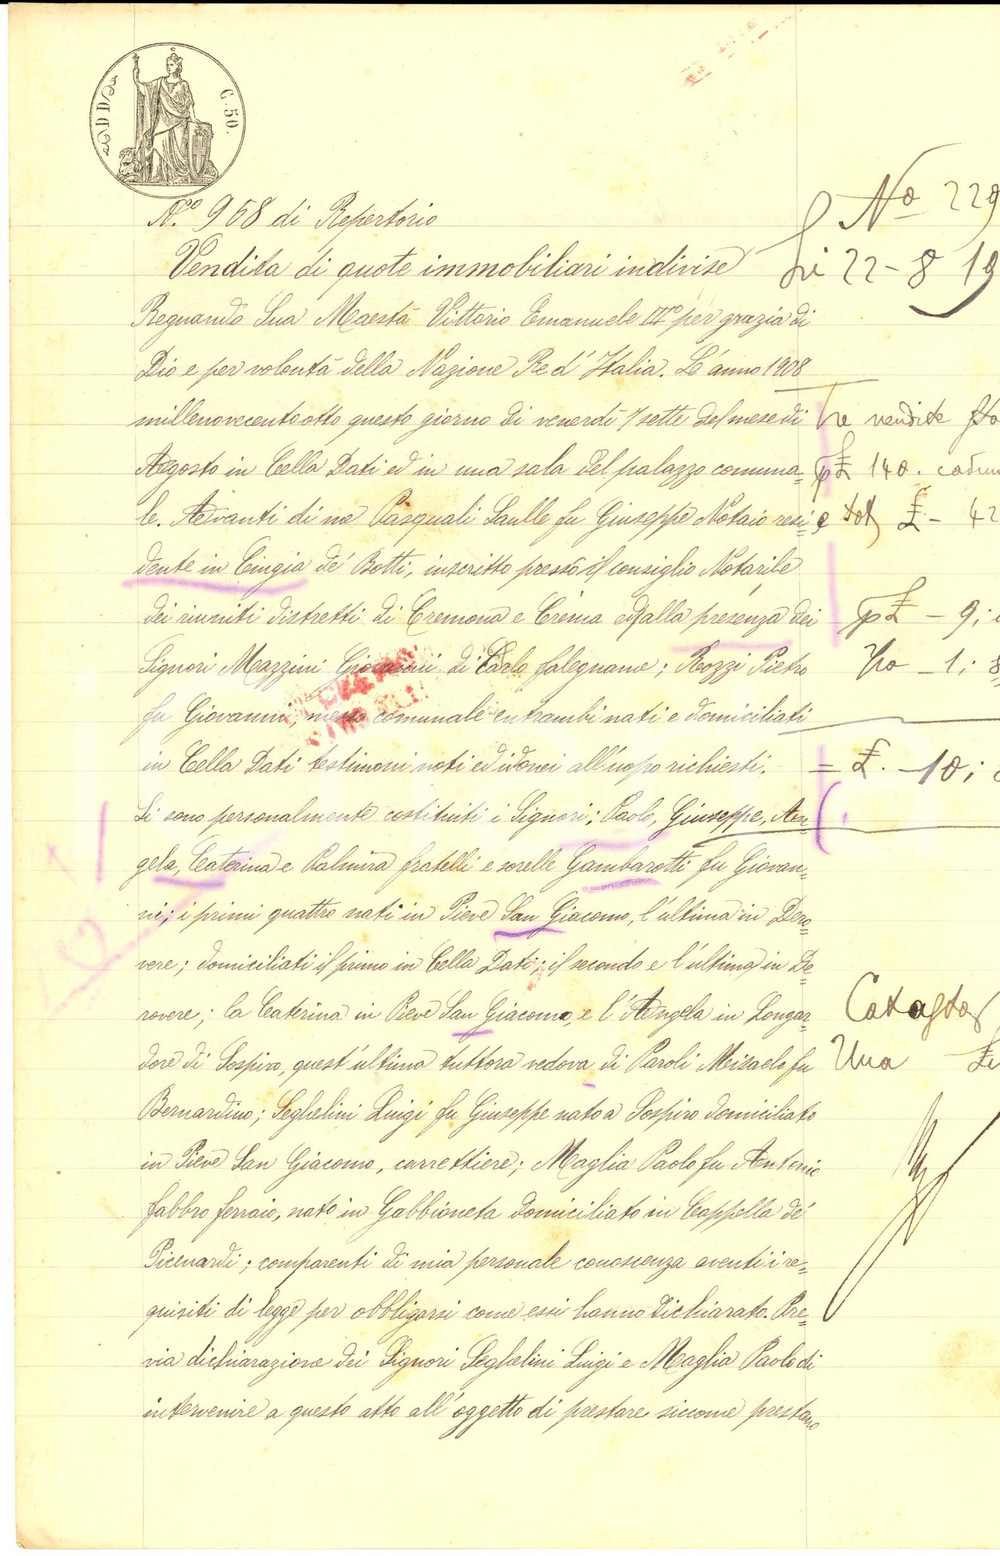 DD
C. 50.
N.º 968 di Repertorio
Vendita di quote immobiliari indivise
Regnando Sua Maestà Vittorio Emanuele IIIº per grazia di
Dio e per volontà della Nazione Re d'Italia. L'anno 1908
millenovecentootto questo giorno di venerdì 7 sette del mese di
Agosto in Cella Dati ed in una sala del palazzo comuna=
le. Avanti di me Pasquali Saulle fu Giuseppe Notaio resi=
dente in Cingia de' Botti, inscritto presso il consiglio Notarile
dei riuniti distretti di Cremona e Crema ed alla presenza dei
Signori Mazzini Giovanni di Carlo falegname; Rozzi Pietro
fu Giovanni, messo comunale entrambi nati e domiciliati
in Cella Dati testimoni noti ed idonei all'uopo richiesti.
Si sono personalmente costituiti i Signori; Paolo, Giuseppe, An=
gela, Caterina e Palmira fratelli e sorelle Gambarotti fu Giovan=
ni; i primi quattro nati in Pieve San Giacomo, l'ultima in Dero=
vere; domiciliati il primo in Cella Dati; il secondo e l'ultima in De=
rovere; la Caterina in Pieve San Giacomo, e l'Angela in Longar=
dore di Sospiro, quest'ultima tuttora vedova di Paroli Meisaele fu
Bernardino; Seghelini Luigi fu Giuseppe nato a Sospiro domiciliato
in Pieve San Giacomo, carrettiere; Maglia Paolo fu Antonio
fabbro ferraio, nato in Gabbioneta domiciliato in Cappella de'
Picenardi; comparenti di mia personale conoscenza aventi i re=
quisiti di legge per obbligarsi come essi hanno dichiarato. Pre=
via dichiarazione dei Signori Seghelini Luigi e Maglia Paolo di
intervenire a questo atto all'oggetto di prestare siccome prestano
No 229
li 22-8 19
Tre vendite
£ 140.
e tot £ - 42
£ - 9;
1; 8
= £. - 10;
Catastas
Una